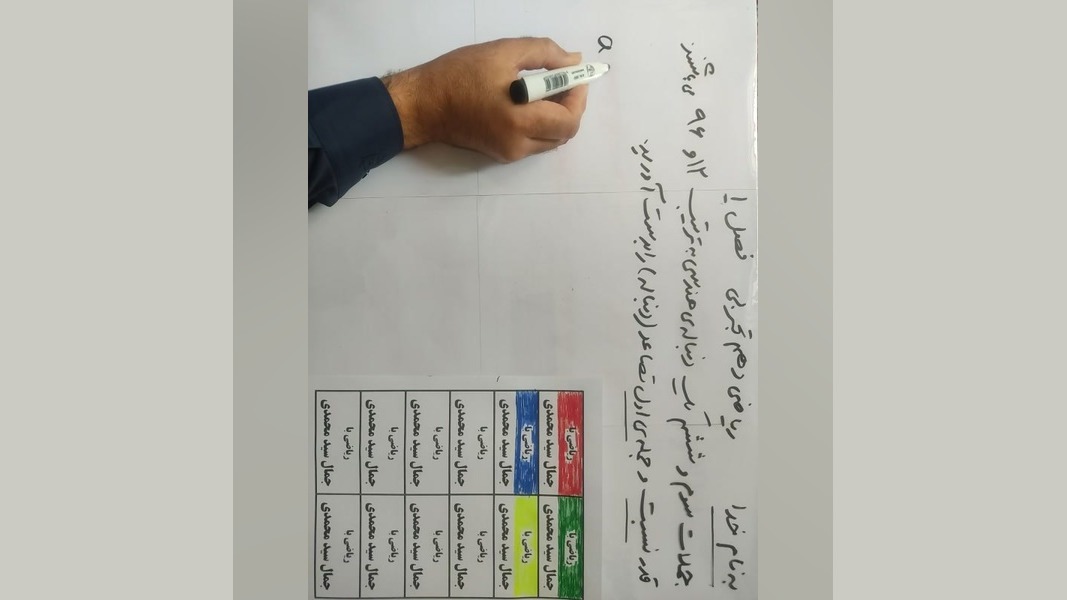 به نام خدا ریاضی دهم تجربی فصل ۱
جملات سوم و ششم یک دنباله‌ی هندسی به ترتیب ۱۲ و ۹۶ می‌باشند
قدر نسبت و جمله‌ی اول تصاعد (دنباله) را بدست آورید.
a
ریاضی با
جمال سید محمدی
ریاضی با
جمال سید محمدی
ریاضی با
جمال سید محمدی
ریاضی با
جمال سید محمدی
ریاضی با
جمال سید محمدی
ریاضی با
جمال سید محمدی
ریاضی با
جمال سید محمدی
ریاضی با
جمال سید محمدی
ریاضی با
جمال سید محمدی
ریاضی با
جمال سید محمدی
ریاضی با
جمال سید محمدی
ریاضی با
جمال سید محمدی